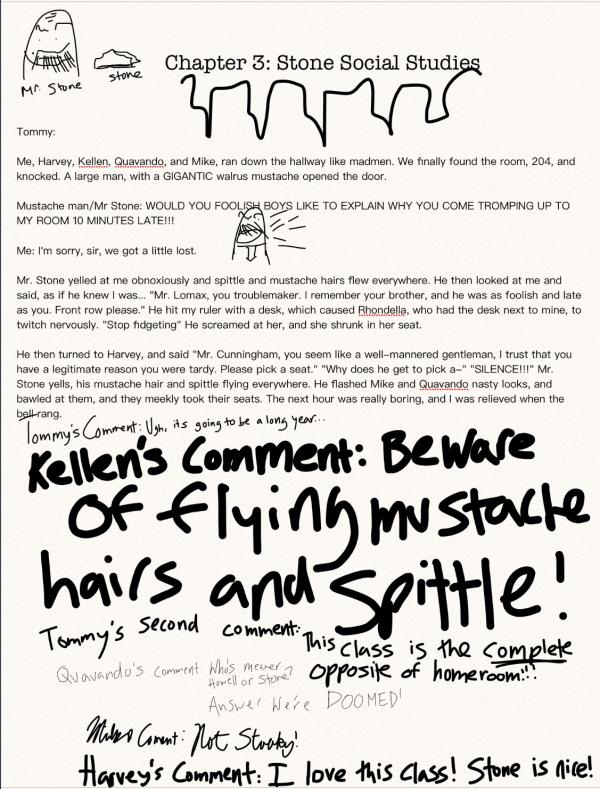 Mr. Stone
stone
Chapter 3: Stone Social Studies
Tommy:
Me, Harvey, Kellen, Quavando, and Mike, ran down the hallway like madmen. We finally found the room, 204, and
knocked. A large man, with a GIGANTIC walrus mustache opened the door.
Mustache man/Mr Stone: WOULD YOU FOOLISH BOYS LIKE TO EXPLAIN WHY YOU COME TROMPING UP TO
MY ROOM 10 MINUTES LATE!!!
Me: I'm sorry, sir, we got a little lost.
Mr. Stone yelled at me obnoxiously and spittle and mustache hairs flew everywhere. He then looked at me and
said, as if he knew I was... "Mr. Lomax, you troublemaker. I remember your brother, and he was as foolish and late
as you. Front row please." He hit my ruler with a desk, which caused Rhondella, who had the desk next to mine, to
twitch nervously. "Stop fidgeting" He screamed at her, and she shrunk in her seat.
He then turned to Harvey, and said "Mr. Cunningham, you seem like a well-mannered gentleman, I trust that you
have a legitimate reason you were tardy. Please pick a seat." "Why does he get to pick a-" "SILENCE!!!" Mr.
Stone yells, his mustache hair and spittle flying everywhere. He flashed Mike and Quavando nasty looks, and
bawled at them, and they meekly took their seats. The next hour was really boring, and I was relieved when the
bell rang.
Tommy's Comment: Ugh, its going to be a long year...
Kellen's Comment: Beware
Of flying mustache
hairs and Spittle!
Tommy's second comment: This class is the complete
opposite of homeroom!!!
Quavando's comment Who's meaner?
Howell or Stone?
Answer We're DOOMED!
Mike's Coment: Not
Harvey's Comment: I love this class! Stone is nice!